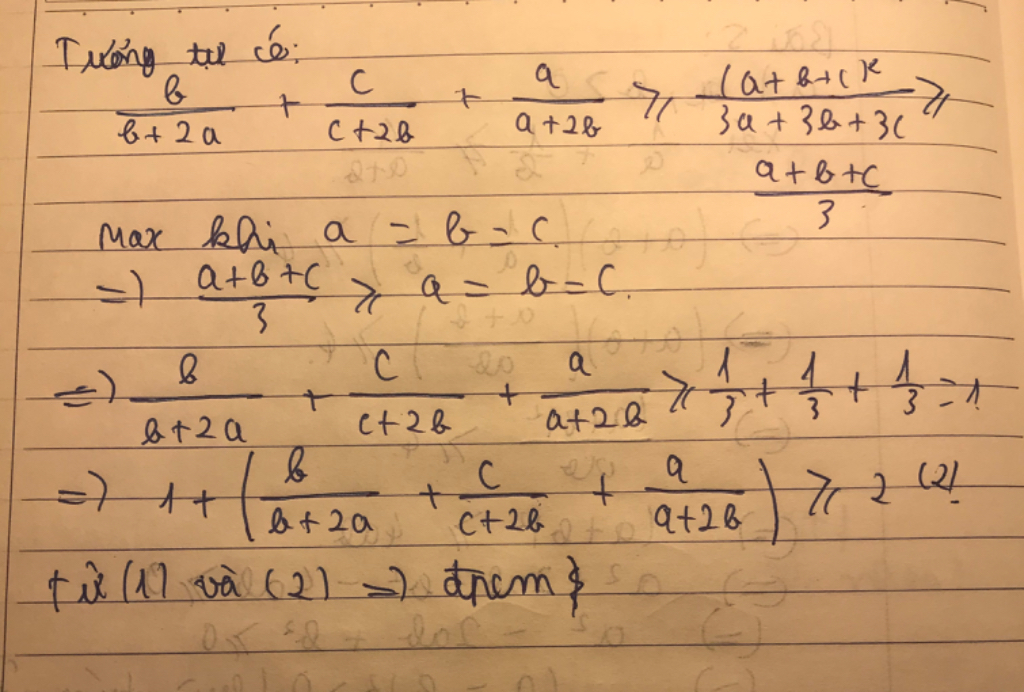 Tương tự có:
b/(b+2a) + c/(c+2b) + a/(a+2b) ⩾ (a+b+c)²/(3a+3b+3c) ⩾
(a+b+c)/3
Max khi a = b = c.
=) (a+b+c)/3 ⩾ a = b = c.
=) b/(b+2a) + c/(c+2b) + a/(a+2b) ⩾ 1/3 + 1/3 + 1/3 = 1.
=) 1 + (b/(b+2a) + c/(c+2b) + a/(a+2b)) ⩾ 2 (2)
từ (1) và (2) =) đpcm